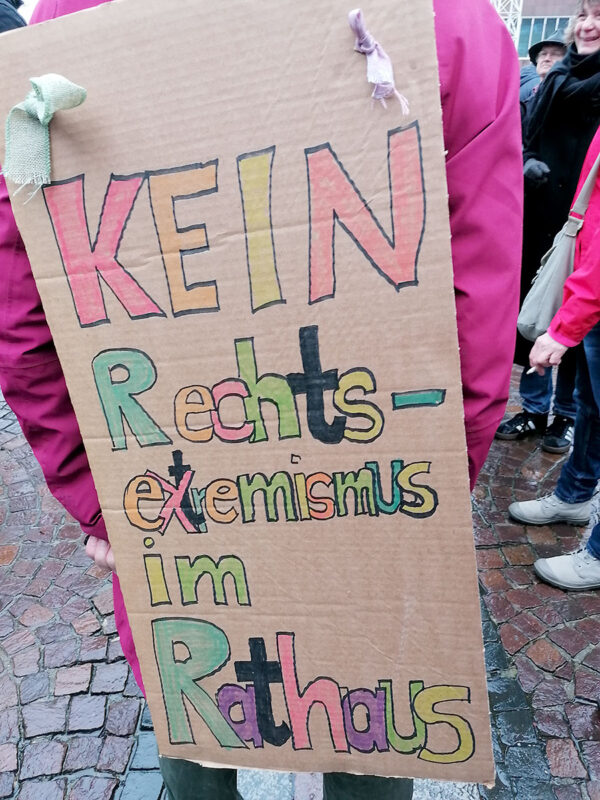 KEIN
Rechts-
extremismus
im
Rathaus